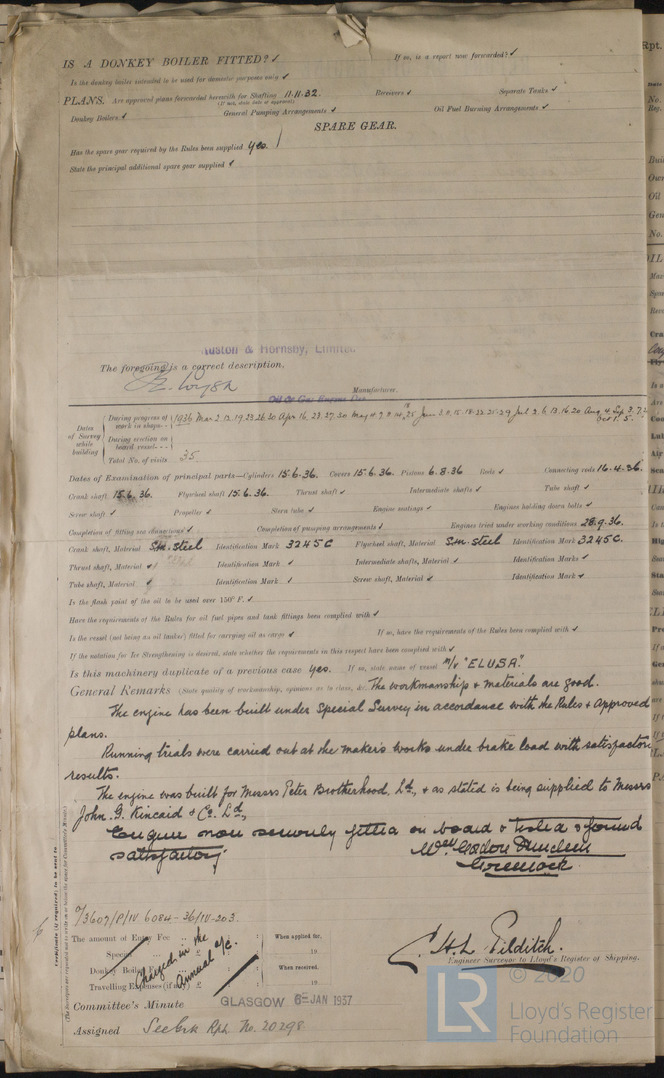 IS A DONKEY BOILER FITTED? ✓ If so, is a report now forwarded? ✓
Is the donkey boiler intended to be used for domestic purposes only ✓
PLANS. Are approved plans forwarded herewith for Shafting 11.11.32. Receivers ✓ Separate Tanks ✓
(If not, state date of approval)
Donkey Boilers ✓ General Pumping Arrangements ✓ Oil Fuel Burning Arrangements ✓
SPARE GEAR.
Has the spare gear required by the Rules been supplied Yes.
State the principal additional spare gear supplied ✓
Ruston & Hornsby, Limited.
The foregoing is a correct description,
Manufacturer.
Dates of Survey while building
During progress of work in shops - - 1936 Mar 2. 13. 19. 23. 26. 30 Apr 16. 23. 27. 30 May
During erection on board vessel - - -
Total No. of visits 35.
Dates of Examination of principal parts—Cylinders 15.6.36. Covers 15.6.36. Pistons 6.8.36 Rods ✓ Connecting rods 16.4.36.
Crank shaft 15.6.36. Flywheel shaft 15.6.36. Thrust shaft ✓ Intermediate shafts ✓ Tube shaft ✓
Screw shaft ✓ Propeller ✓ Stern tube ✓ Engine seatings ✓ Engines holding down bolts ✓
Completion of fitting sea connections ✓ Completion of pumping arrangements ✓ Engines tried under working conditions 28.9.36.
Crank shaft, Material S.M. Steel Identification Mark 3245C Flywheel shaft, Material S.M. Steel Identification Mark 3245C.
Thrust shaft, Material ✓ Identification Mark ✓ Intermediate shafts, Material ✓ Identification Marks ✓
Tube shaft, Material ✓ Identification Mark ✓ Screw shaft, Material ✓ Identification Mark ✓
Is the flash point of the oil to be used over 150° F. ✓
Have the requirements of the Rules for oil fuel pipes and tank fittings been complied with ✓
Is the vessel (not being an oil tanker) fitted for carrying oil as cargo ✓ If so, have the requirements of the Rules been complied with ✓
If the notation for Ice Strengthening is desired, state whether the requirements in this respect have been complied with ✓
Is this machinery duplicate of a previous case Yes. If so, state name of vessel M/V "ELUSA".
General Remarks (State quality of workmanship, opinions as to class, &c. The workmanship & materials are good.
The engine has been built under Special Survey in accordance with the Rules & Approved
plans.
Running trials were carried out at the maker's works under brake load with satisfactory
results.
The engine was built for Messrs Peter Brotherhood, Ld., & as stated is being supplied to Messrs
John G. Kincaid & Co. Ld.,
Engine now securely fitted on board & tested & found
satisfactory
Greenock
The amount of Entry Fee .. £ : : When applied for,
Special ... ... £ : : 19
Donkey Boiler ... £ : : When received,
Travelling Expenses (if any) £ : : 19
Charged in the Annual a/c.
C.H.L. Pilditch.
Engineer Surveyor to Lloyd's Register of Shipping.
Committee's Minute GLASGOW 6 - JAN 1937
Assigned See Grk Rpt. No. 20298.
© 2020
LR
Lloyd's Register
Foundation